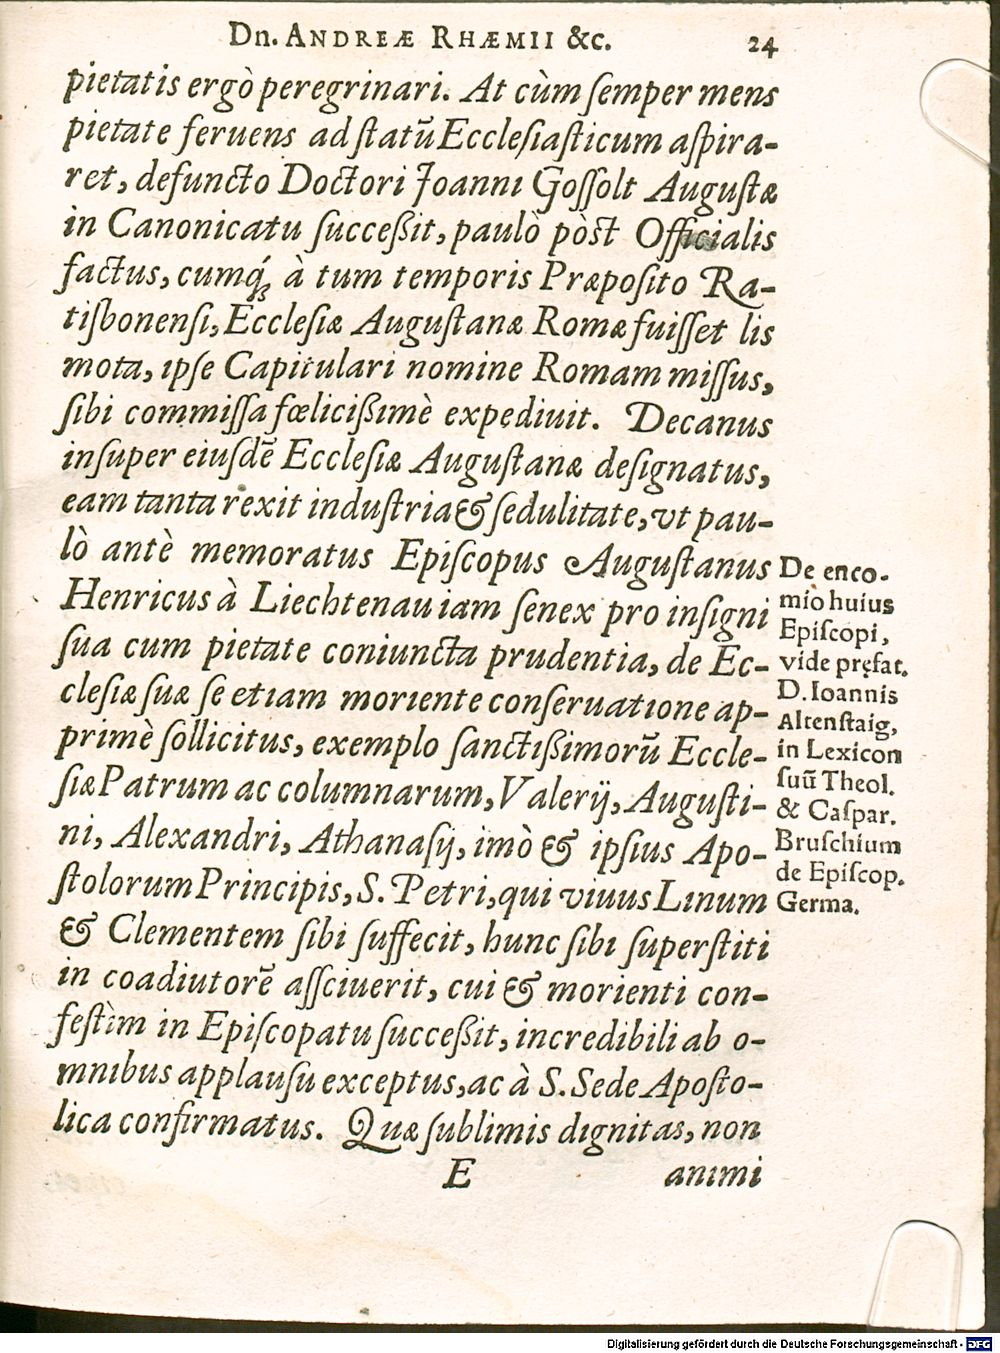 Dn. ANDREÆ RHÆMII &c. 24
pietatis ergò peregrinari. At cùm ſemper mens
pietate feruens ad ſtatũ Eccleſiaſticum aſpira-
ret, defuncto Doctori Joanni Goſſolt Auguſtæ
in Canonicatu ſucceßit, paulò pòst Officialis
factus, cumq́ꝫ à tum temporis Præpoſito Ra-
tiſbonenſi, Eccleſiæ Auguſtanæ Romæ fuiſſet lis
mota, ipſe Capitulari nomine Romam miſſus,
ſibi commiſſa fœlicißimè expediuit. Decanus
inſuper eiuſdẽ Eccleſiæ Auguſtanæ deſignatus,
eam tanta rexit induſtria & ſedulitate, vt pau-
lò antè memoratus Epiſcopus Auguſtanus
Henricus à Liechtenau iam ſenex pro inſigni
ſua cum pietate coniuncta prudentia, de Ec-
cleſiæ ſuæ ſe etiam moriente conſeruatione ap-
primè ſollicitus, exemplo ſanctißimorũ Eccle-
ſiæ Patrum ac columnarum, Valerij, Auguſti-
ni, Alexandri, Athanaſij, imò & ipſius Apo-
ſtolorum Principis, S. Petri, qui viuus Linum
& Clementem ſibi ſuffecit, hunc ſibi ſuperſtiti
in coadiutorẽ aſſciuerit, cui & morienti con-
feſtìm in Epiſcopatu ſucceßit, incredibili ab o-
mnibus applauſu exceptus, ac à S. Sede Apoſto-
lica confirmatus. Quæ ſublimis dignitas, non
E animi
De enco-
mio huius
Epiſcopi,
vide pręfat.
D. Ioannis
Altenſtaig,
in Lexicon
ſuũ Theol.
& Caſpar.
Bruſchium
de Epiſcop.
Germa.
Digitalisierung gefördert durch die Deutsche Forschungsgemeinschaft - DFG